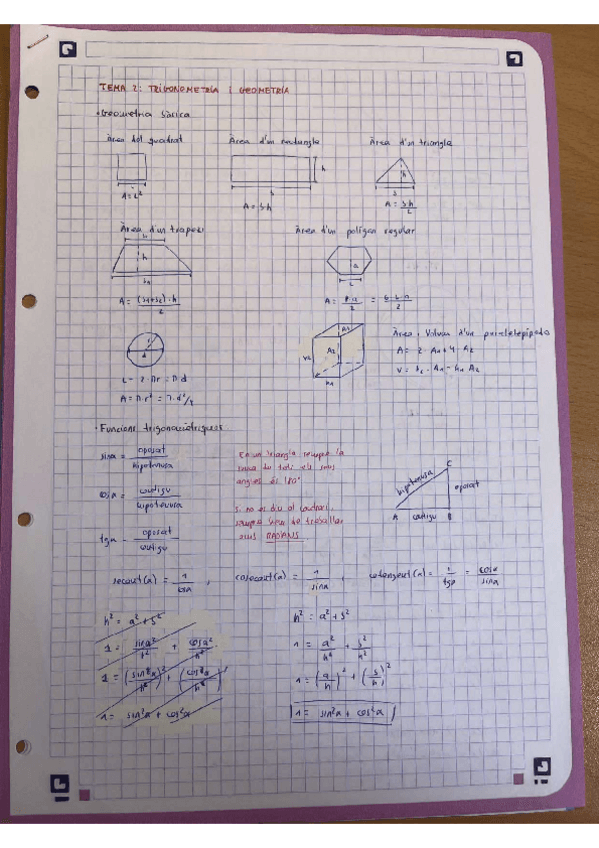 TEMA 2: TRIGONOMETRÍA I GEOMETRÍA
• Geometria bàsica
Àrea del quadrat
Àrea d'un rectangle
Àrea d'un triangle
h
h
b
b
A = L²
A = b·h
A = b·h / 2
Àrea d'un trapezi
Àrea d'un polígon regular
h
a
L
A = (b1+b2)·h / 2
A = P·a / 2 =
r
d
A1
A2
Àrea i Volum d'un paral·lelepípede
A = 2·A1+4·A2
L = 2·π·r = π·d
A = π·r² = π·d²/4
• Funcions trigonomètriques
sin α = oposat / hipotenusa
cos α = contigu / hipotenusa
tg α = oposat / contigu
En un triangle recte la
suma de tots els seus
angles és 180°
Si no es diu al contrari,
sempre s'ha de treballar
amb RADIANS
hipotenusa
C
oposat
A
contigu
B
secant(α) = 1 / cos α , cosecant(α) = 1 / sin α , cotangent(α) = 1 / tg α = cos α / sin α
h² = a² + b²
h² = a² + b²
1 = sin α² / h² + cos α² / h²
1 = a² / h² + b² / h²
1 = (sin² α / h²) + (cos² α / h²)
1 = (a / h)² + (b / h)²
1 = sin² α + cos² α
1 = sin² α + cos² α